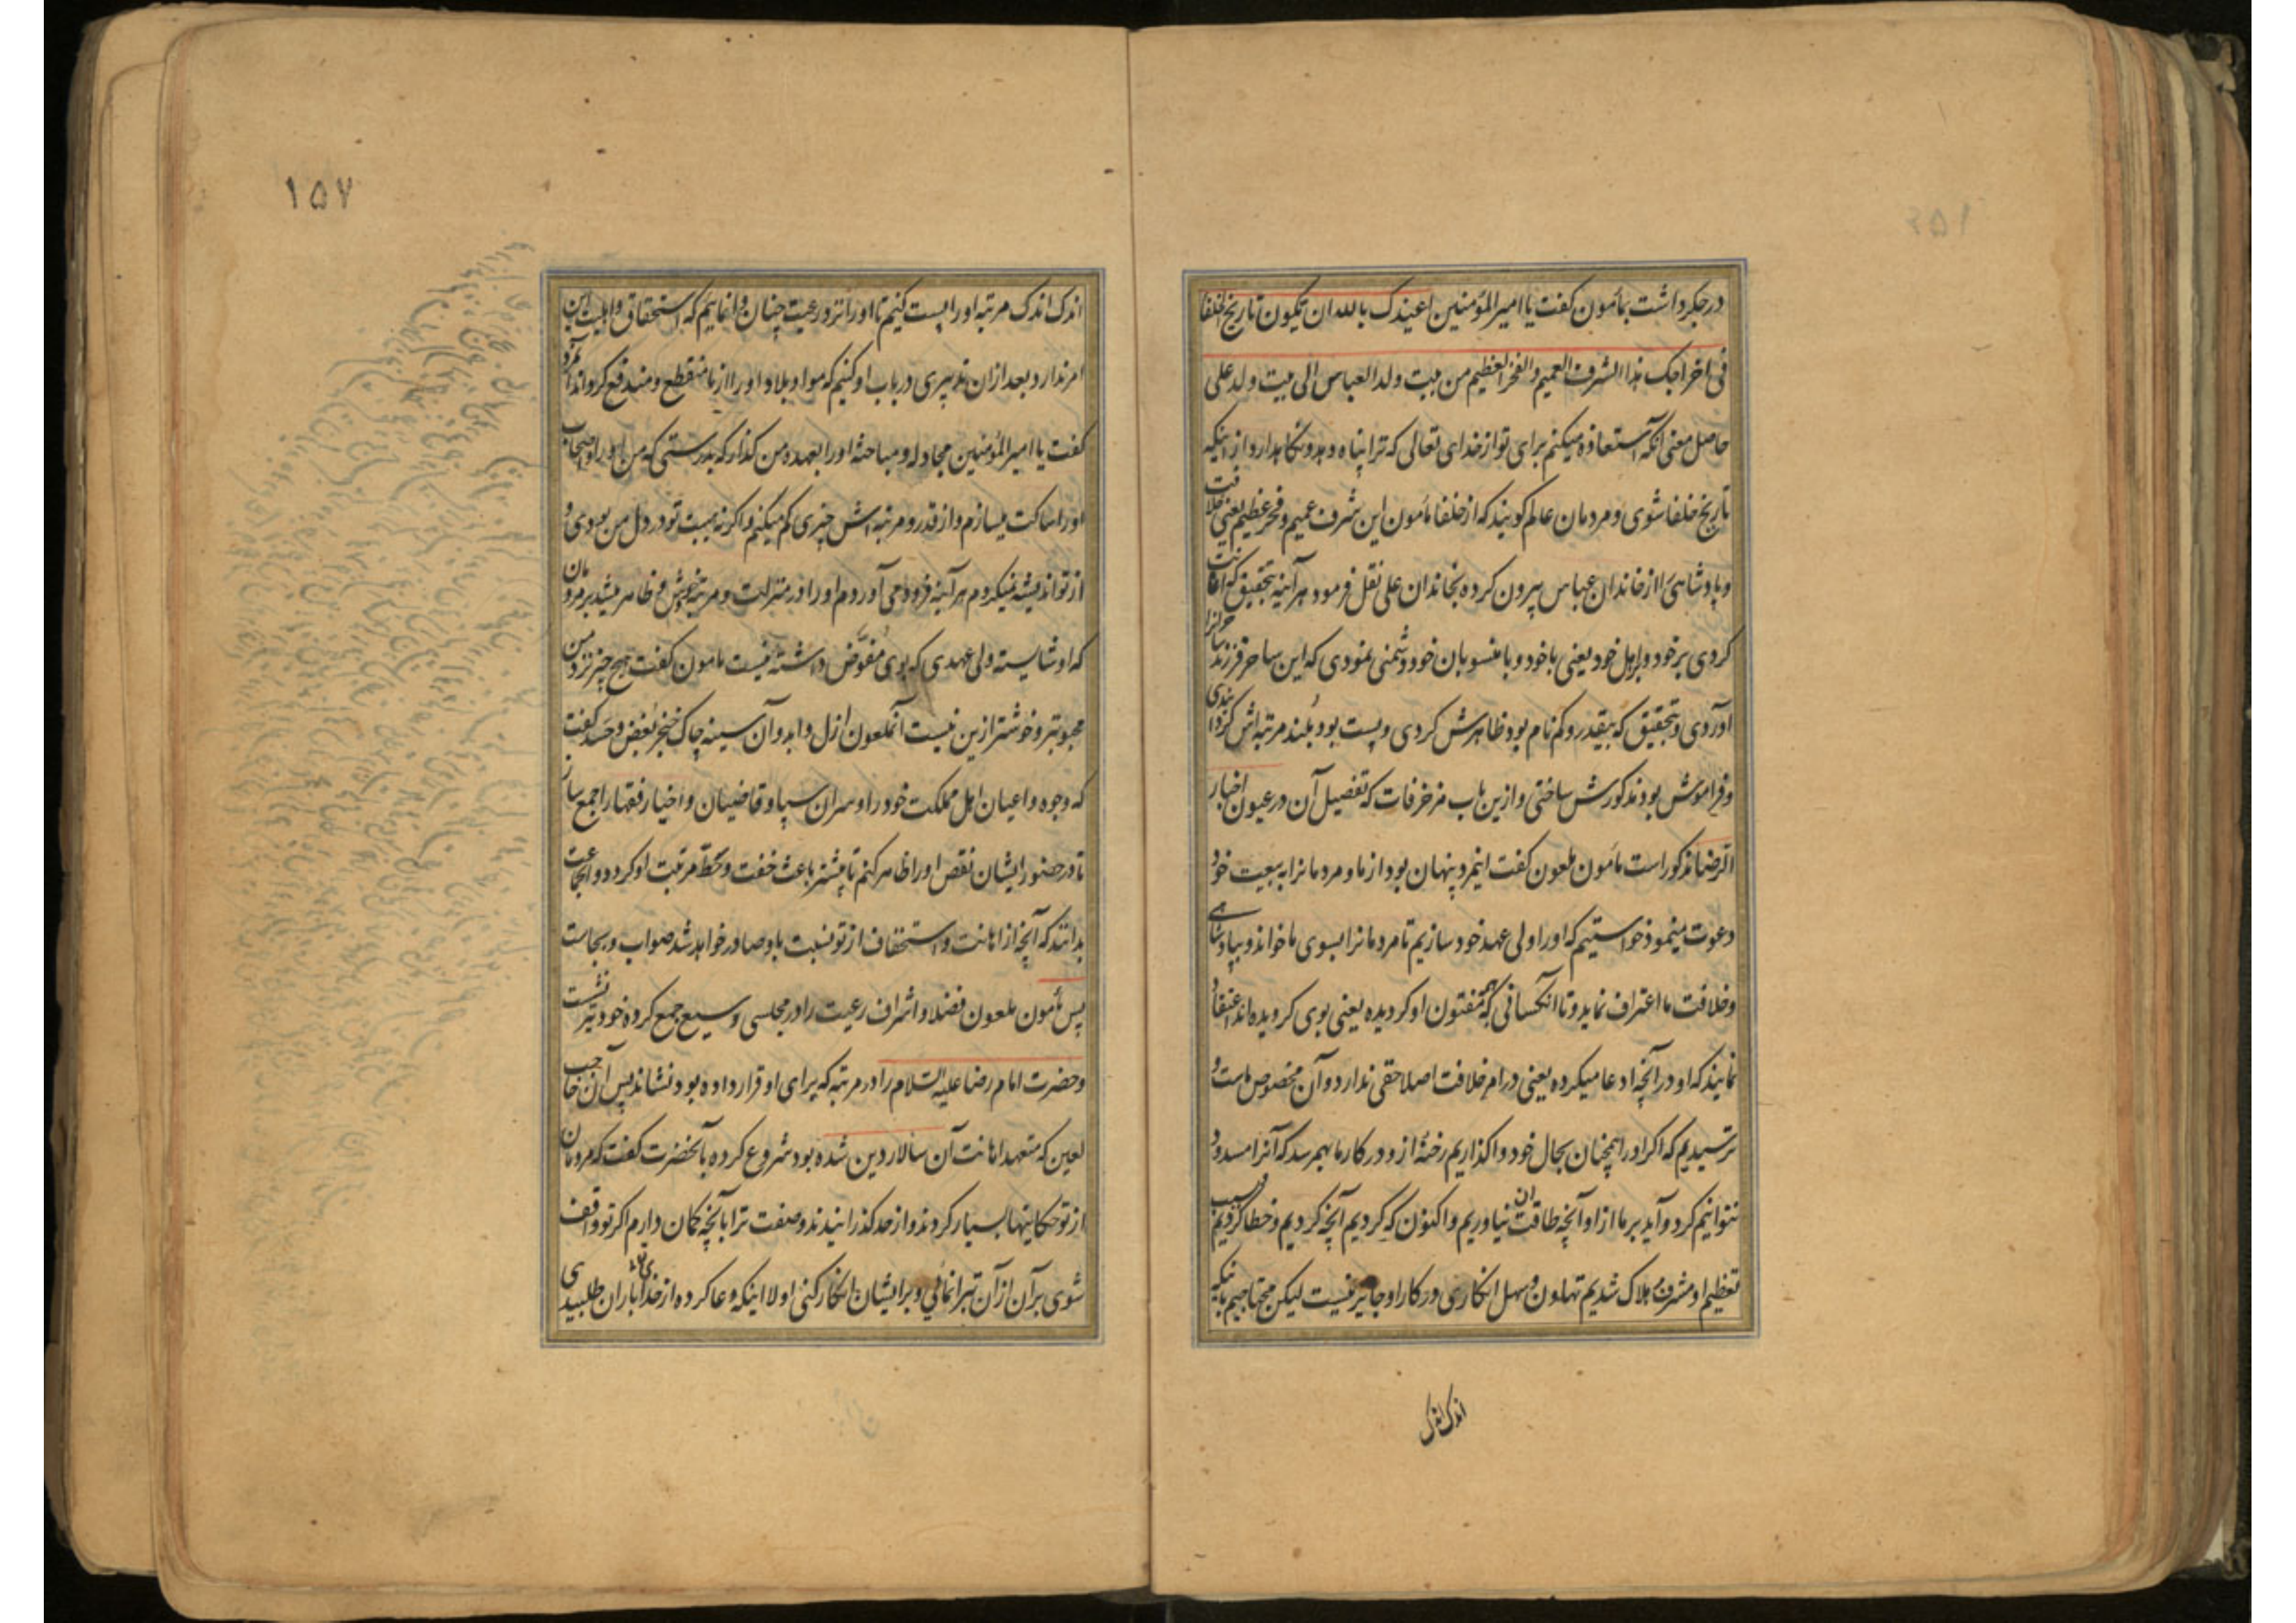 در جکر داشت بمأمون کفت یا امیرالمؤمنین اعیذک بالله ان تکون تاریخ الخلفا
فی اخراجک هذا الشرف العمیم و الفخر العظیم من بیت ولد العباس الی بیت ولد علی
حاصل معنی آنکه استعاذه میکنم برای تو از خدای تعالی که ترا پناه دهد و نکاهدارد از اینکه
تاریخ خلفا شوی و مردمان عالم کویند که از خلفا مأمون این شرف عمیم و فخر عظیم یعنی خلافت
و پادشاهی را از خاندان عباس بیرون کرده بخاندان علی نقل فرمود هر آینه بتحقیق که اعانت
کردی بر خود و بر اهل خود یعنی با خود و با منسوبان خود دشمنی نمودی که این ساحر فرزند ساحرانرا
آوردی و بتحقیق که بیقدر و کم نام بود ظاهرش کردی و پست بود بلند مرتبه اش کردانیدی
و فراموش بود مذکورش ساختی و ازین باب مزخرفات که تفصیل آن در عیون اخبار
الرضا مذکور است مأمون ملعون کفت اینمرد پنهان بود از ما و مردمانرا به بیعت خود
دعوت مینمود خواستیم که اورا ولی عهد خود سازیم تا مردمانرا بسوی ما خواند و بپادشاهی
و خلافت ما اعتراف نماید و تا آنکسانی که مفتون او کردیده یعنی بوی کرویده اند اعتقاد
نمایند که او در آنچه ادعا میکرده یعنی در امر خلافت اصلا حقی ندارد و آن مخصوص ماست و
ترسیدیم که اکر اورا همچنان بحال خود واکذاریم رخنهٔ ازو در کار ما بهمرسد که آنرا مسدود
نتوانیم کرد و آید بر ما از او آنچه طاقت آن نیاوریم و اکنون که کردیم آنچه کردیم و خطا کردیم و بسبب
تعظیم او مشرف هلاک شدیم تهاون و سهل انکاری در کار او جایز نیست لیکن محتاجیم باینکه
اندک اندک
۱۵۷
اندک اندک مرتبه اورا پست کنیم تا اورا نزد رعیت چنان وانماییم که استحقاق و اهلیت این
امر ندارد و بعد از آن تدبیری در باب او کنیم که مواد بلاد اورا از ما منقطع و مندفع کرداند آنمرد
کفت یا امیرالمؤمنین مجادله و مباحثهٔ اورا بعهده من کذار که بدرستی که من او را و اصحاب
اورا ساکت میسازم و از قدر و مرتبه اش چیزی کم میکنم و اکر نه هیبت تو در دل من بودی و
از تو اندیشه نمیکردم هر آینه فرود می آوردم اورا در منزلت و مرتبهٔ خودش و ظاهر میشد بر مردمان
که او شایستهٔ ولی عهدی که بوی مفوّض داشتهٔ نیست مامون کفت هیچ چیز نزد من
محبوبتر و خوشتر ازین نیست آنملعون ازل و ابد و آن سینه چاک خنجر بغض و حسد کفت
که وجوه و اعیان اهل مملکت خود را و سران سپاه و قاضیان و اخیار فقها را جمع ساز
تا در حضور ایشان نقص اورا ظاهر کنم تا پیشتر باعث خفت و حطّ مرتبت او کردد و آنجماعت
بدانند که آنچه از اهانت و استخفاف از تو نسبت باو صادر خواهد شد صواب و بجاست
پس مأمون ملعون فضلا و اشراف رعیت را در مجلسی وسیع جمع کرده خود نیز نشست
و حضرت امام رضا علیه السلام را در مرتبهٔ که برای او قرار داده بود نشاند پس آن حاجب
لعین که متعهد اهانت آن سالار دین شده بود شروع کرده بآنحضرت کفت که مردمان
از تو حکایتها بسیار کردند و از حد کذرانیدند و صفت ترا بآنچه کمان دارم اکر تو واقف
شوی بر آن از آن تبرا نمائی و بر ایشان انکار کنی اولا اینکه دعا کرده از خدای باران طلبیدی